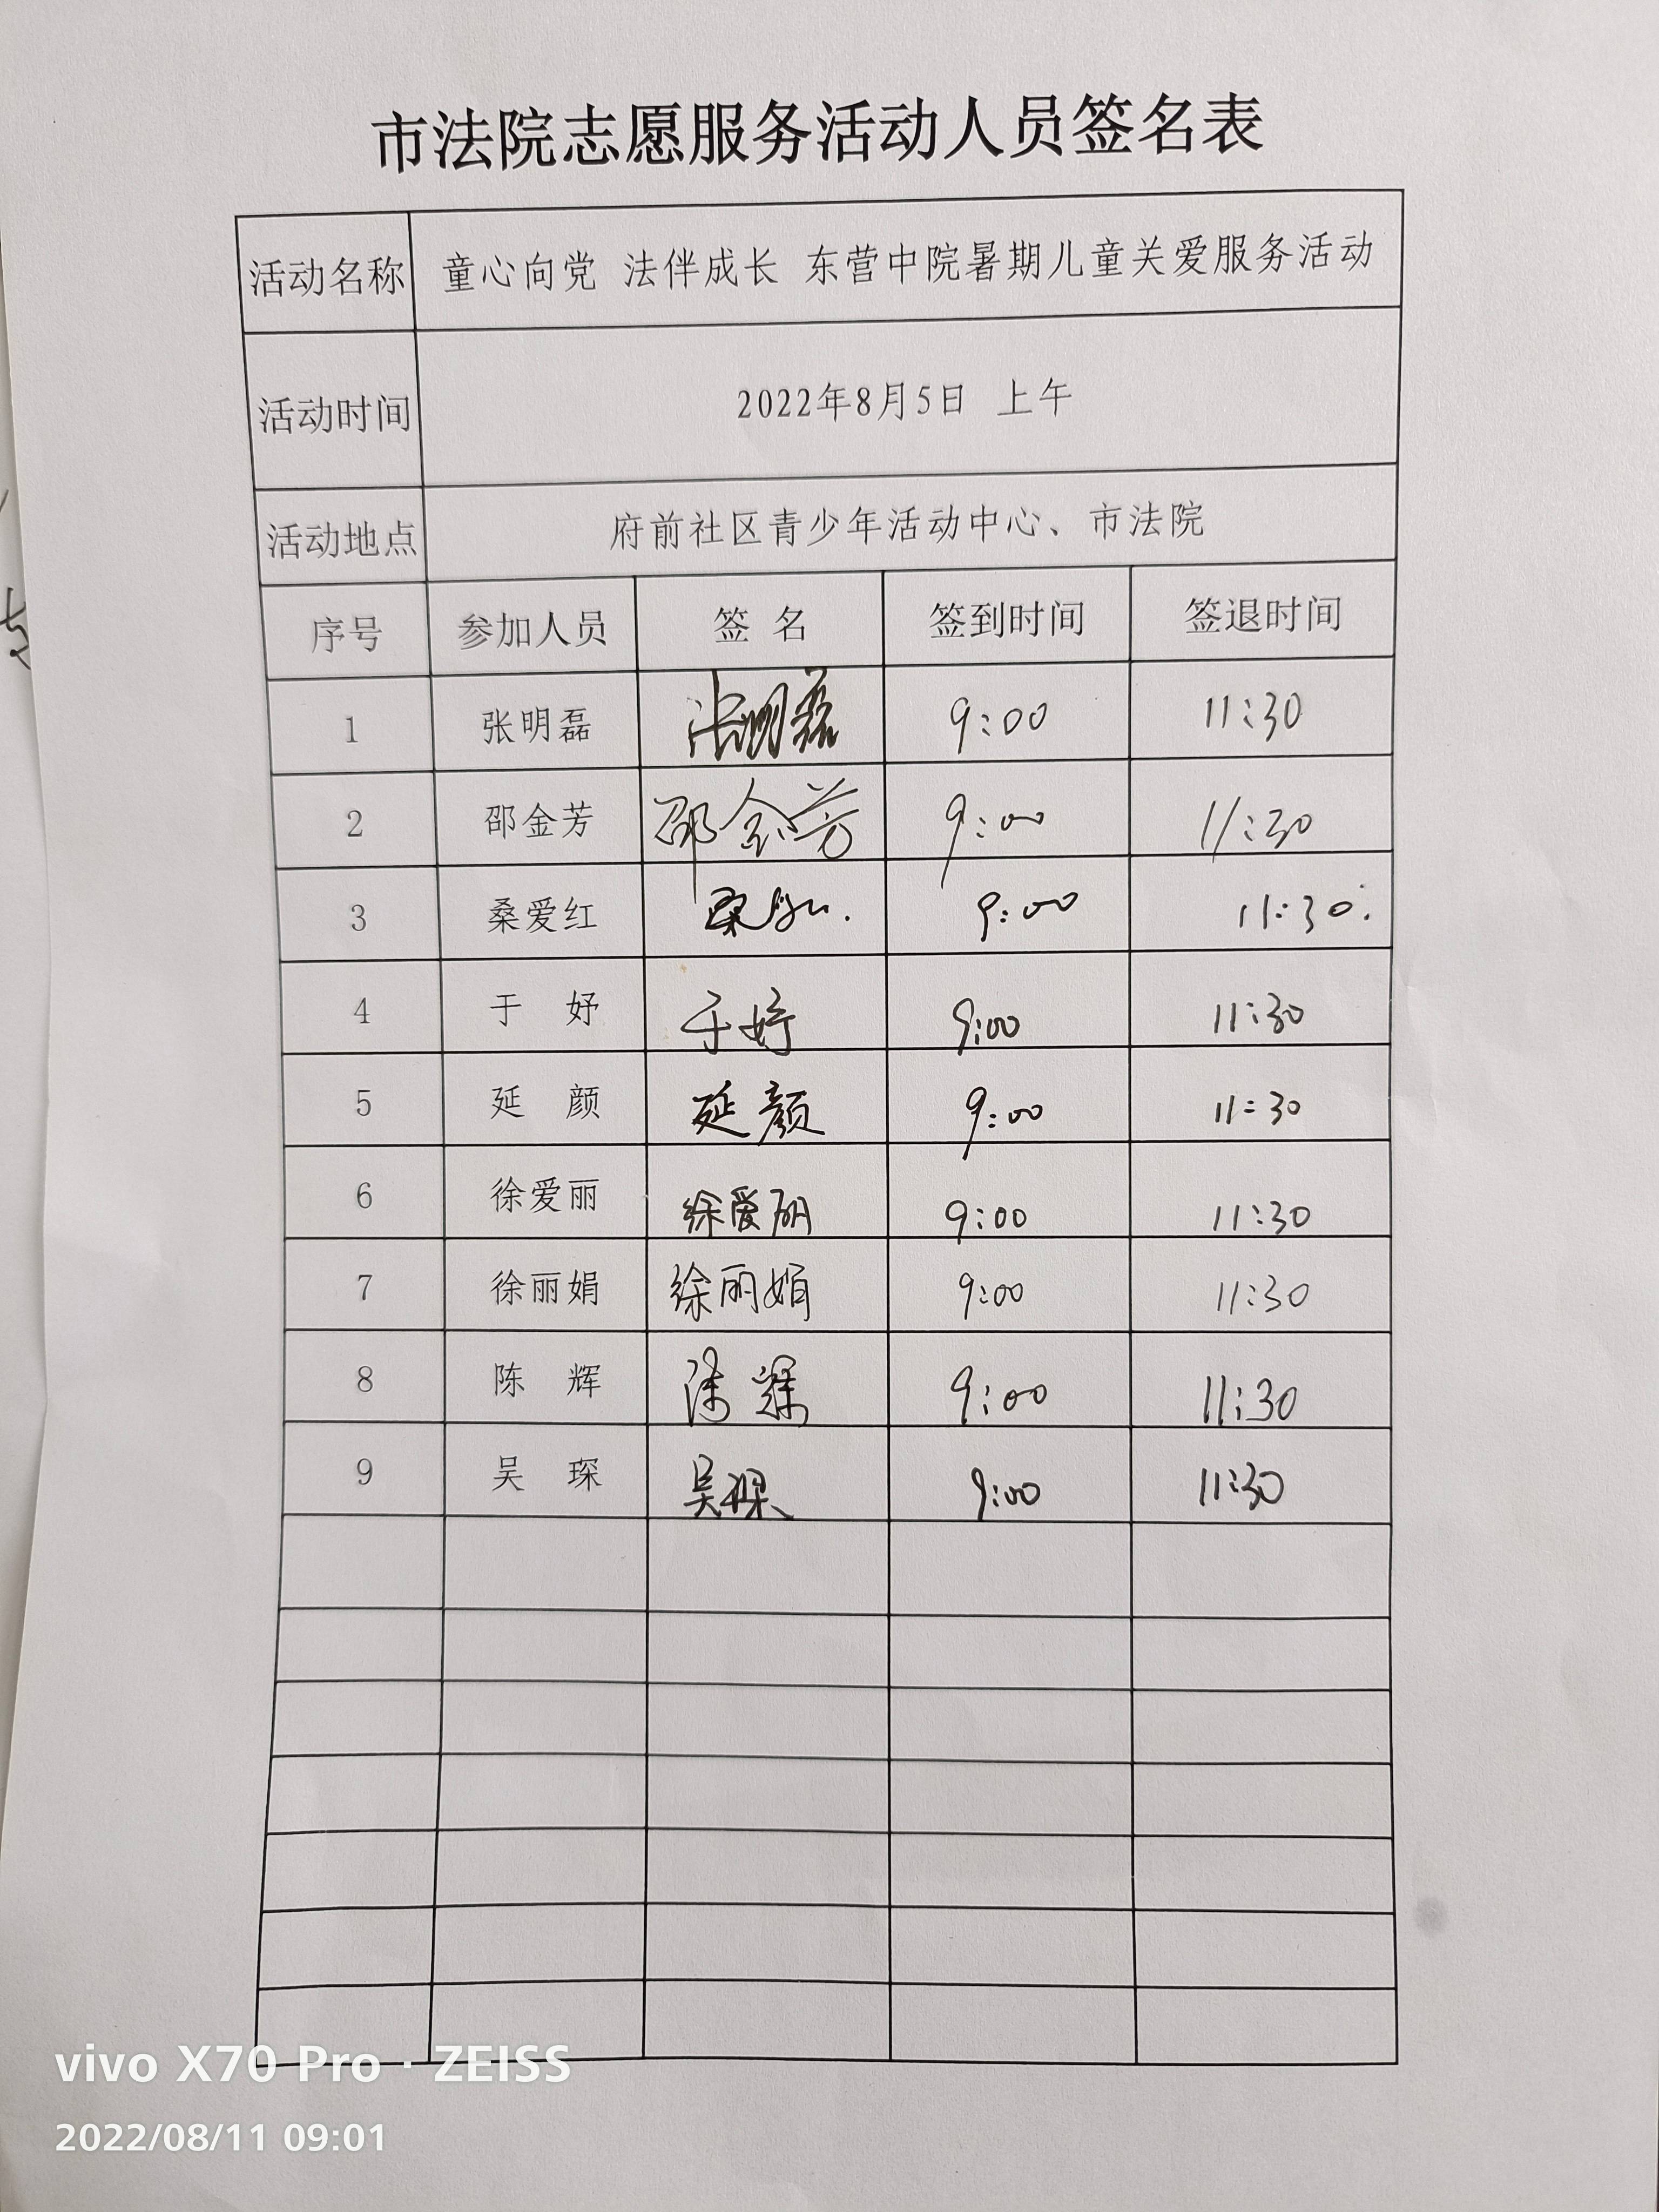 市法院志愿服务活动人员签名表
活动名称 童心向党 法伴成长 东营中院暑期儿童关爱服务活动
活动时间 2022年8月5日 上午
活动地点 府前社区青少年活动中心、市法院
序号 参加人员 签 名 签到时间 签退时间
1 张明磊 张明磊 9:00 11:30
2 邵金芳 邵金芳 9:00 11:30
3 桑爱红 桑爱红. 9:00 11:30.
4 于 妤 于妤 9:00 11:30
5 延 颜 延颜 9:00 11:30
6 徐爱丽 徐爱丽 9:00 11:30
7 徐丽娟 徐丽娟 9:00 11:30
8 陈 辉 陈辉 9:00 11:30
9 吴 琛 吴琛 9:00 11:30
vivo X70 Pro · ZEISS
2022/08/11 09:01